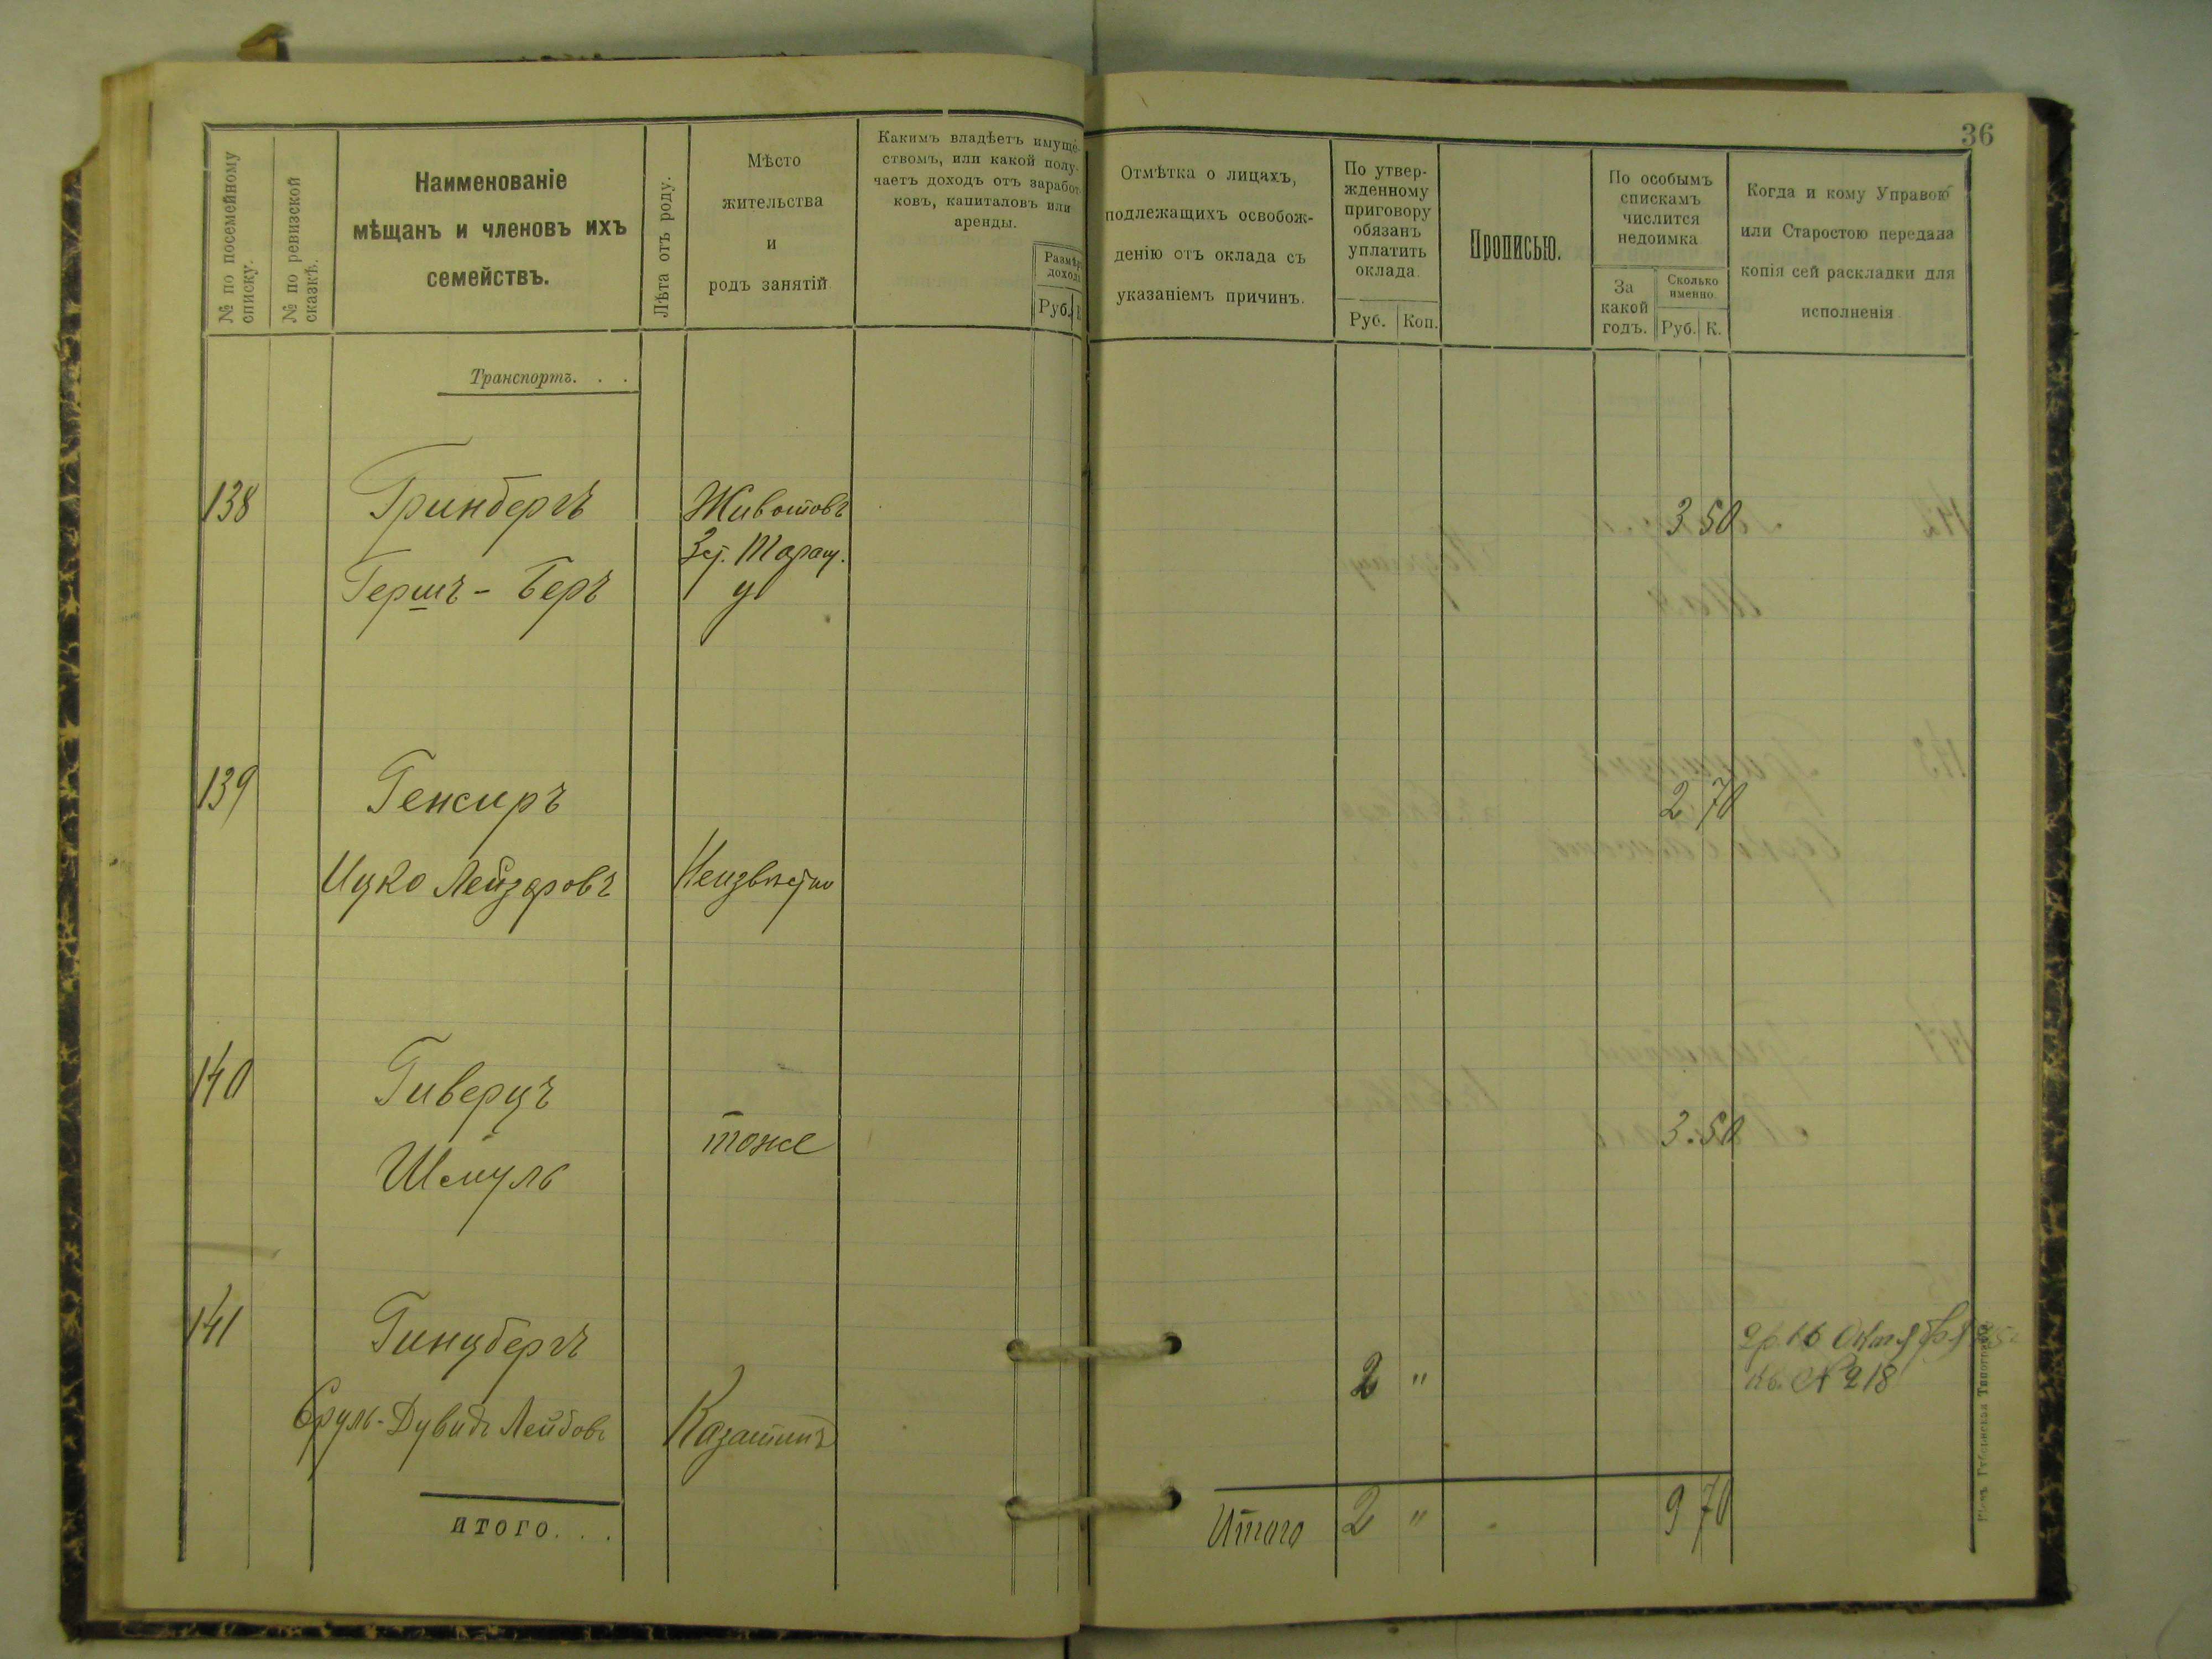 36
№ по посемейному списку.
№ по ревизской сказкѣ.
Наименованіе
мѣщанъ и членовъ ихъ
семействъ.
Лѣта отъ роду.
Мѣсто
жительства
и
родъ занятій
Какимъ владѣетъ имуще-
ствомъ, или какой полу-
чаетъ доходъ отъ заработ-
ковъ, капиталовъ или
аренды.
Размѣръ
дохода
Руб.
Отмѣтка о лицахъ,
подлежащихъ освобож-
денію отъ оклада съ
указаніемъ причинъ.
По утвер-
жденному
приговору
обязанъ
уплатить
оклада.
Руб. Коп.
Прописью.
По особымъ
спискамъ
числится
недоимка
За
какой
годъ.
Сколько
именно.
Руб. К.
Когда и кому Управою
или Старостою передана
копія сей раскладки для
исполненія
Транспортъ. . .
138 Гринбергъ Животовъ 3 50
Таращ.
Гершъ - Беръ у
139 Генсиръ 2 70
Ицко Лейзеровъ Неизвѣстно
140 Гиверцъ
тоже 3.50
Шмуль
141 Гинцбергъ 2р. 16 Октября
2 " кв. № 218
Сруль-Дувидъ Лейбовъ Казатинъ
итого. . .
Итого 2 " 9 70
Губернская Типографія